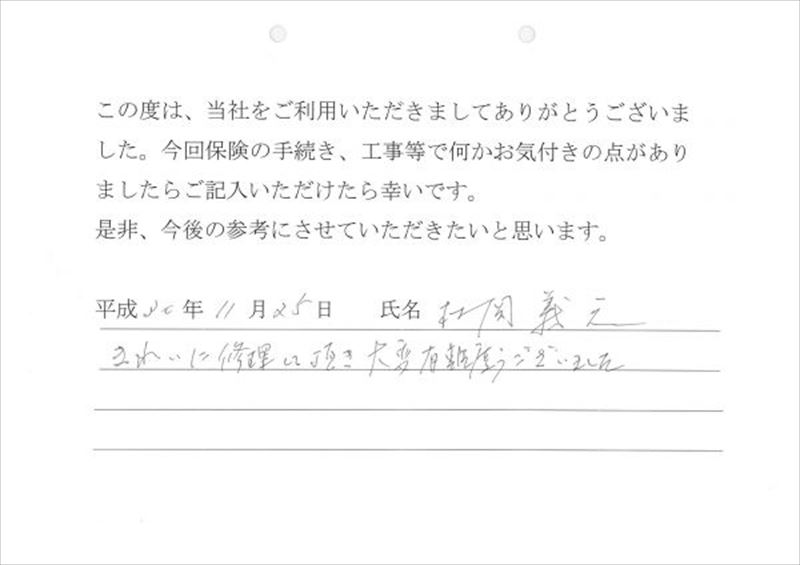 この度は、当社をご利用いただきましてありがとうございま
した。今回保険の手続き、工事等で何かお気付きの点があり
ましたらご記入いただけたら幸いです。
是非、今後の参考にさせていただきたいと思います。
平成30年11月25日 氏名 義元
きれいに修理して頂き大変有難度うございました